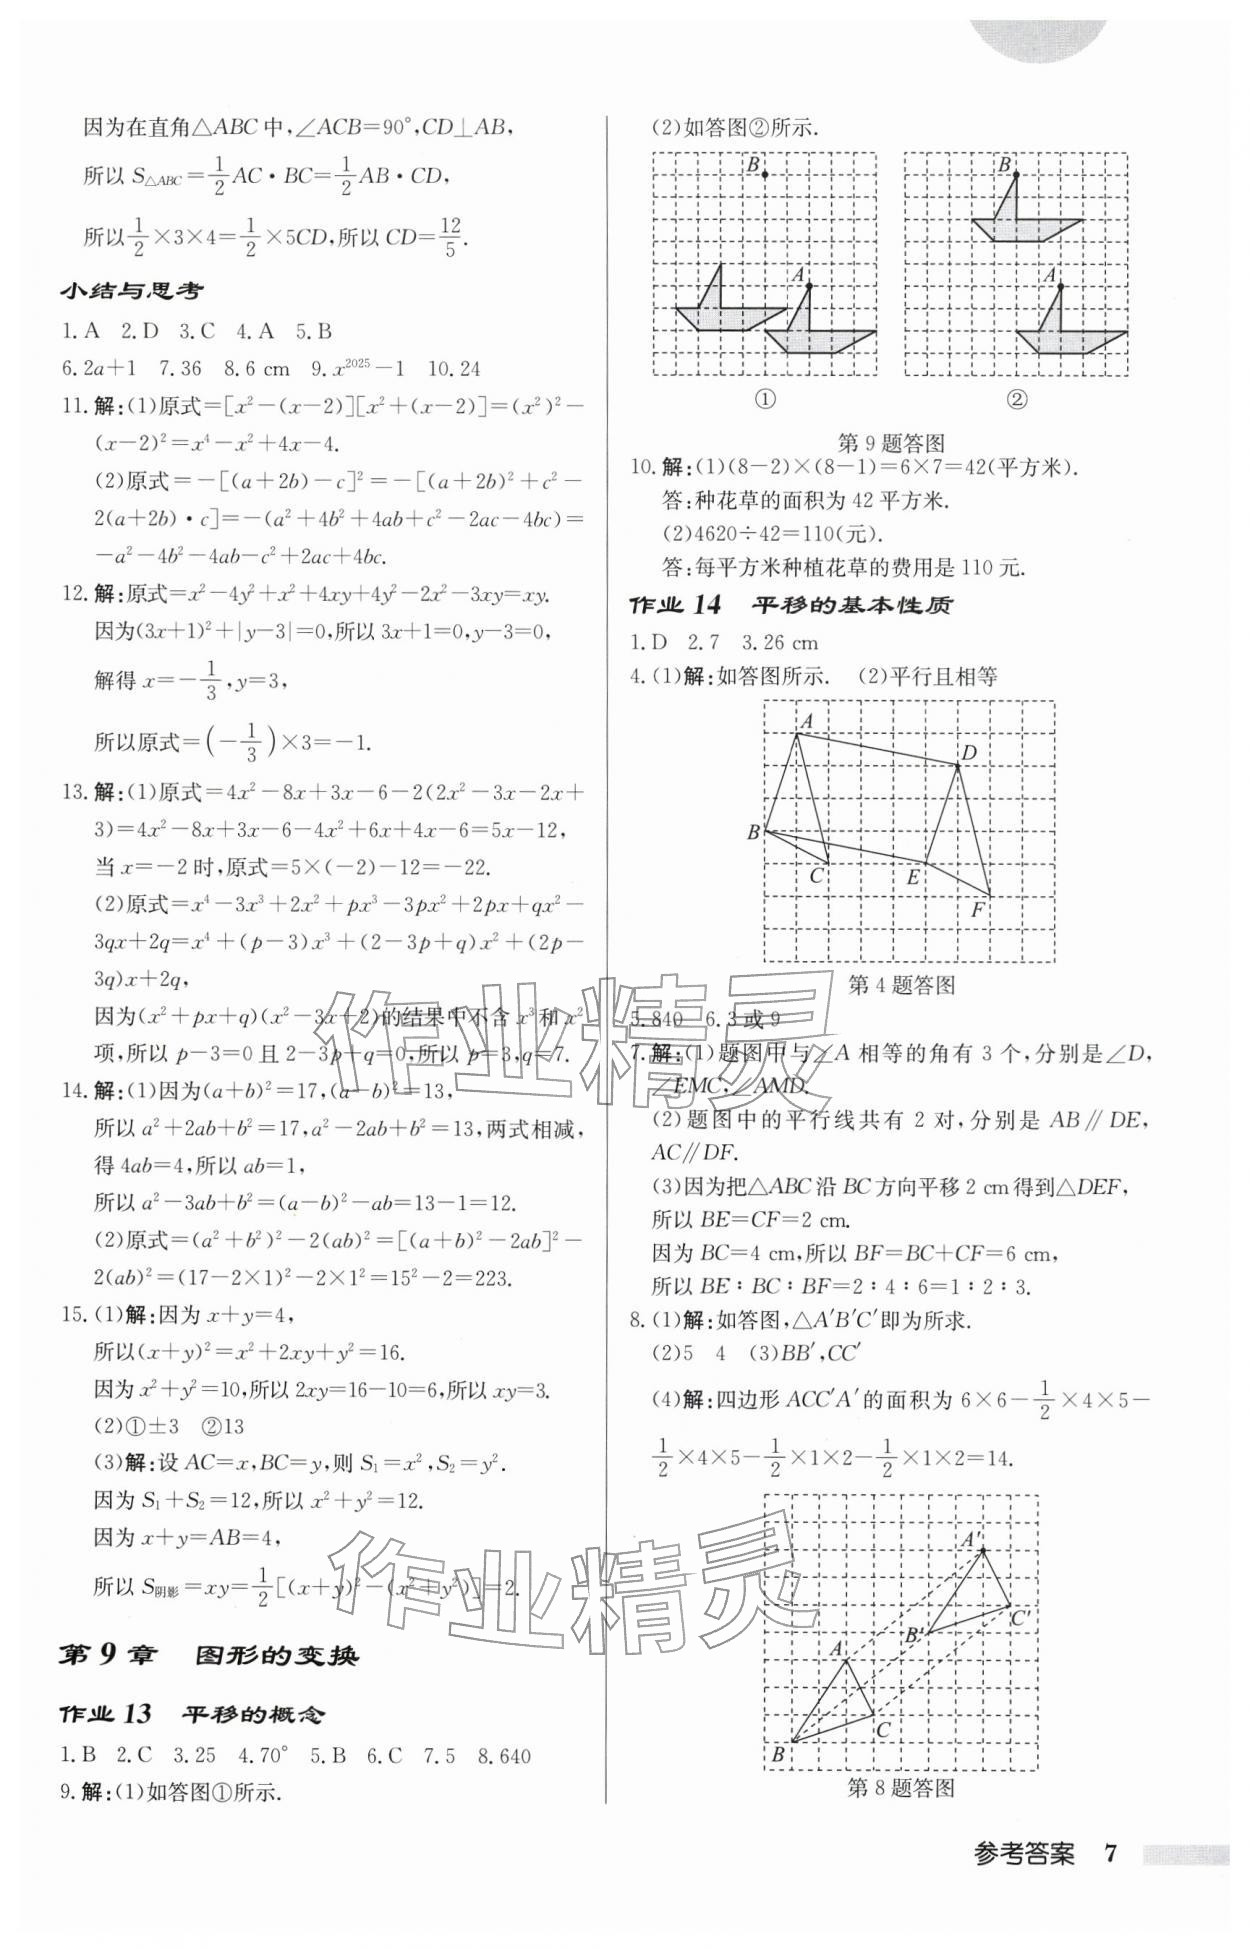 因为在直角△ABC中,∠ACB=90°,CD⊥AB,
所以 S△ABC=1/2 AC·BC=1/2 AB·CD,
所以1/2×3×4=1/2×5CD,所以 CD=12/5.
小结与思考
1.A 2.D 3.C 4.A 5.B
6.2a+1 7.36 8.6 cm 9.x²⁰²⁵-1 10.24
11.解:(1)原式=[x²-(x-2)][x²+(x-2)]=(x²)²-
(x-2)²=x⁴-x²+4x-4.
(2)原式=-[(a+2b)-c]²=-[(a+2b)²+c²-
2(a+2b)·c]=-(a²+4b²+4ab+c²-2ac-4bc)=
-a²-4b²-4ab-c²+2ac+4bc.
12.解:原式=x²-4y²+x²+4xy+4y²-2x²-3xy=xy.
因为(3x+1)²+|y-3|=0,所以 3x+1=0,y-3=0,
解得 x=-1/3,y=3,
所以原式=(-1/3)×3=-1.
13.解:(1)原式=4x²-8x+3x-6-2(2x²-3x-2x+
3)=4x²-8x+3x-6-4x²+6x+4x-6=5x-12,
当 x=-2 时,原式=5×(-2)-12=-22.
(2)原式=x⁴-3x³+2x²+px³-3px²+2px+qx²-
3qx+2q=x⁴+(p-3)x³+(2-3p+q)x²+(2p-
3q)x+2q,
因为(x²+px+q)(x²-3x+2)的结果中不含 x³和 x²
项,所以 p-3=0 且 2-3p+q=0,所以 p=3,q=7.
14.解:(1)因为(a+b)²=17,(a-b)²=13,
所以 a²+2ab+b²=17,a²-2ab+b²=13,两式相减,
得 4ab=4,所以 ab=1,
所以 a²-3ab+b²=(a-b)²-ab=13-1=12.
(2)原式=(a²+b²)²-2(ab)²=[(a+b)²-2ab]²-
2(ab)²=(17-2×1)²-2×1²=15²-2=223.
15.(1)解:因为 x+y=4,
所以(x+y)²=x²+2xy+y²=16.
因为 x²+y²=10,所以 2xy=16-10=6,所以 xy=3.
(2)①±3 ②13
(3)解:设 AC=x,BC=y,则 S₁=x²,S₂=y².
因为 S₁+S₂=12,所以 x²+y²=12.
因为 x+y=AB=4,
所以 S阴影=xy=1/2[(x+y)²-(x²+y²)]=2.
第9章 图形的变换
作业13 平移的概念
1.B 2.C 3.25 4.70° 5.B 6.C 7.5 8.640
9.解:(1)如答图①所示.
(2)如答图②所示.
B
A
①
B
A
②
第9题答图
10.解:(1)(8-2)×(8-1)=6×7=42(平方米).
答:种花草的面积为 42 平方米.
(2)4620÷42=110(元).
答:每平方米种植花草的费用是 110 元.
作业14 平移的基本性质
1.D 2.7 3.26 cm
4.(1)解:如答图所示. (2)平行且相等
A
D
B
C
E
F
第4题答图
5.840 6.3或9
7.解:(1)题图中与∠A 相等的角有 3 个,分别是∠D,
∠EMC,∠AMD.
(2)题图中的平行线共有 2 对,分别是 AB∥DE,
AC∥DF.
(3)因为把△ABC 沿 BC 方向平移 2 cm 得到△DEF,
所以 BE=CF=2 cm.
因为 BC=4 cm,所以 BF=BC+CF=6 cm,
所以 BE∶BC∶BF=2∶4∶6=1∶2∶3.
8.(1)解:如答图,△A′B′C′即为所求.
(2)5 4 (3)BB′,CC′
(4)解:四边形 ACC′A′的面积为 6×6-1/2×4×5-
1/2×4×5-1/2×1×2-1/2×1×2=14.
A′
B′
C′
A
C
B
第8题答图
作业精灵
作业精灵
参考答案 7